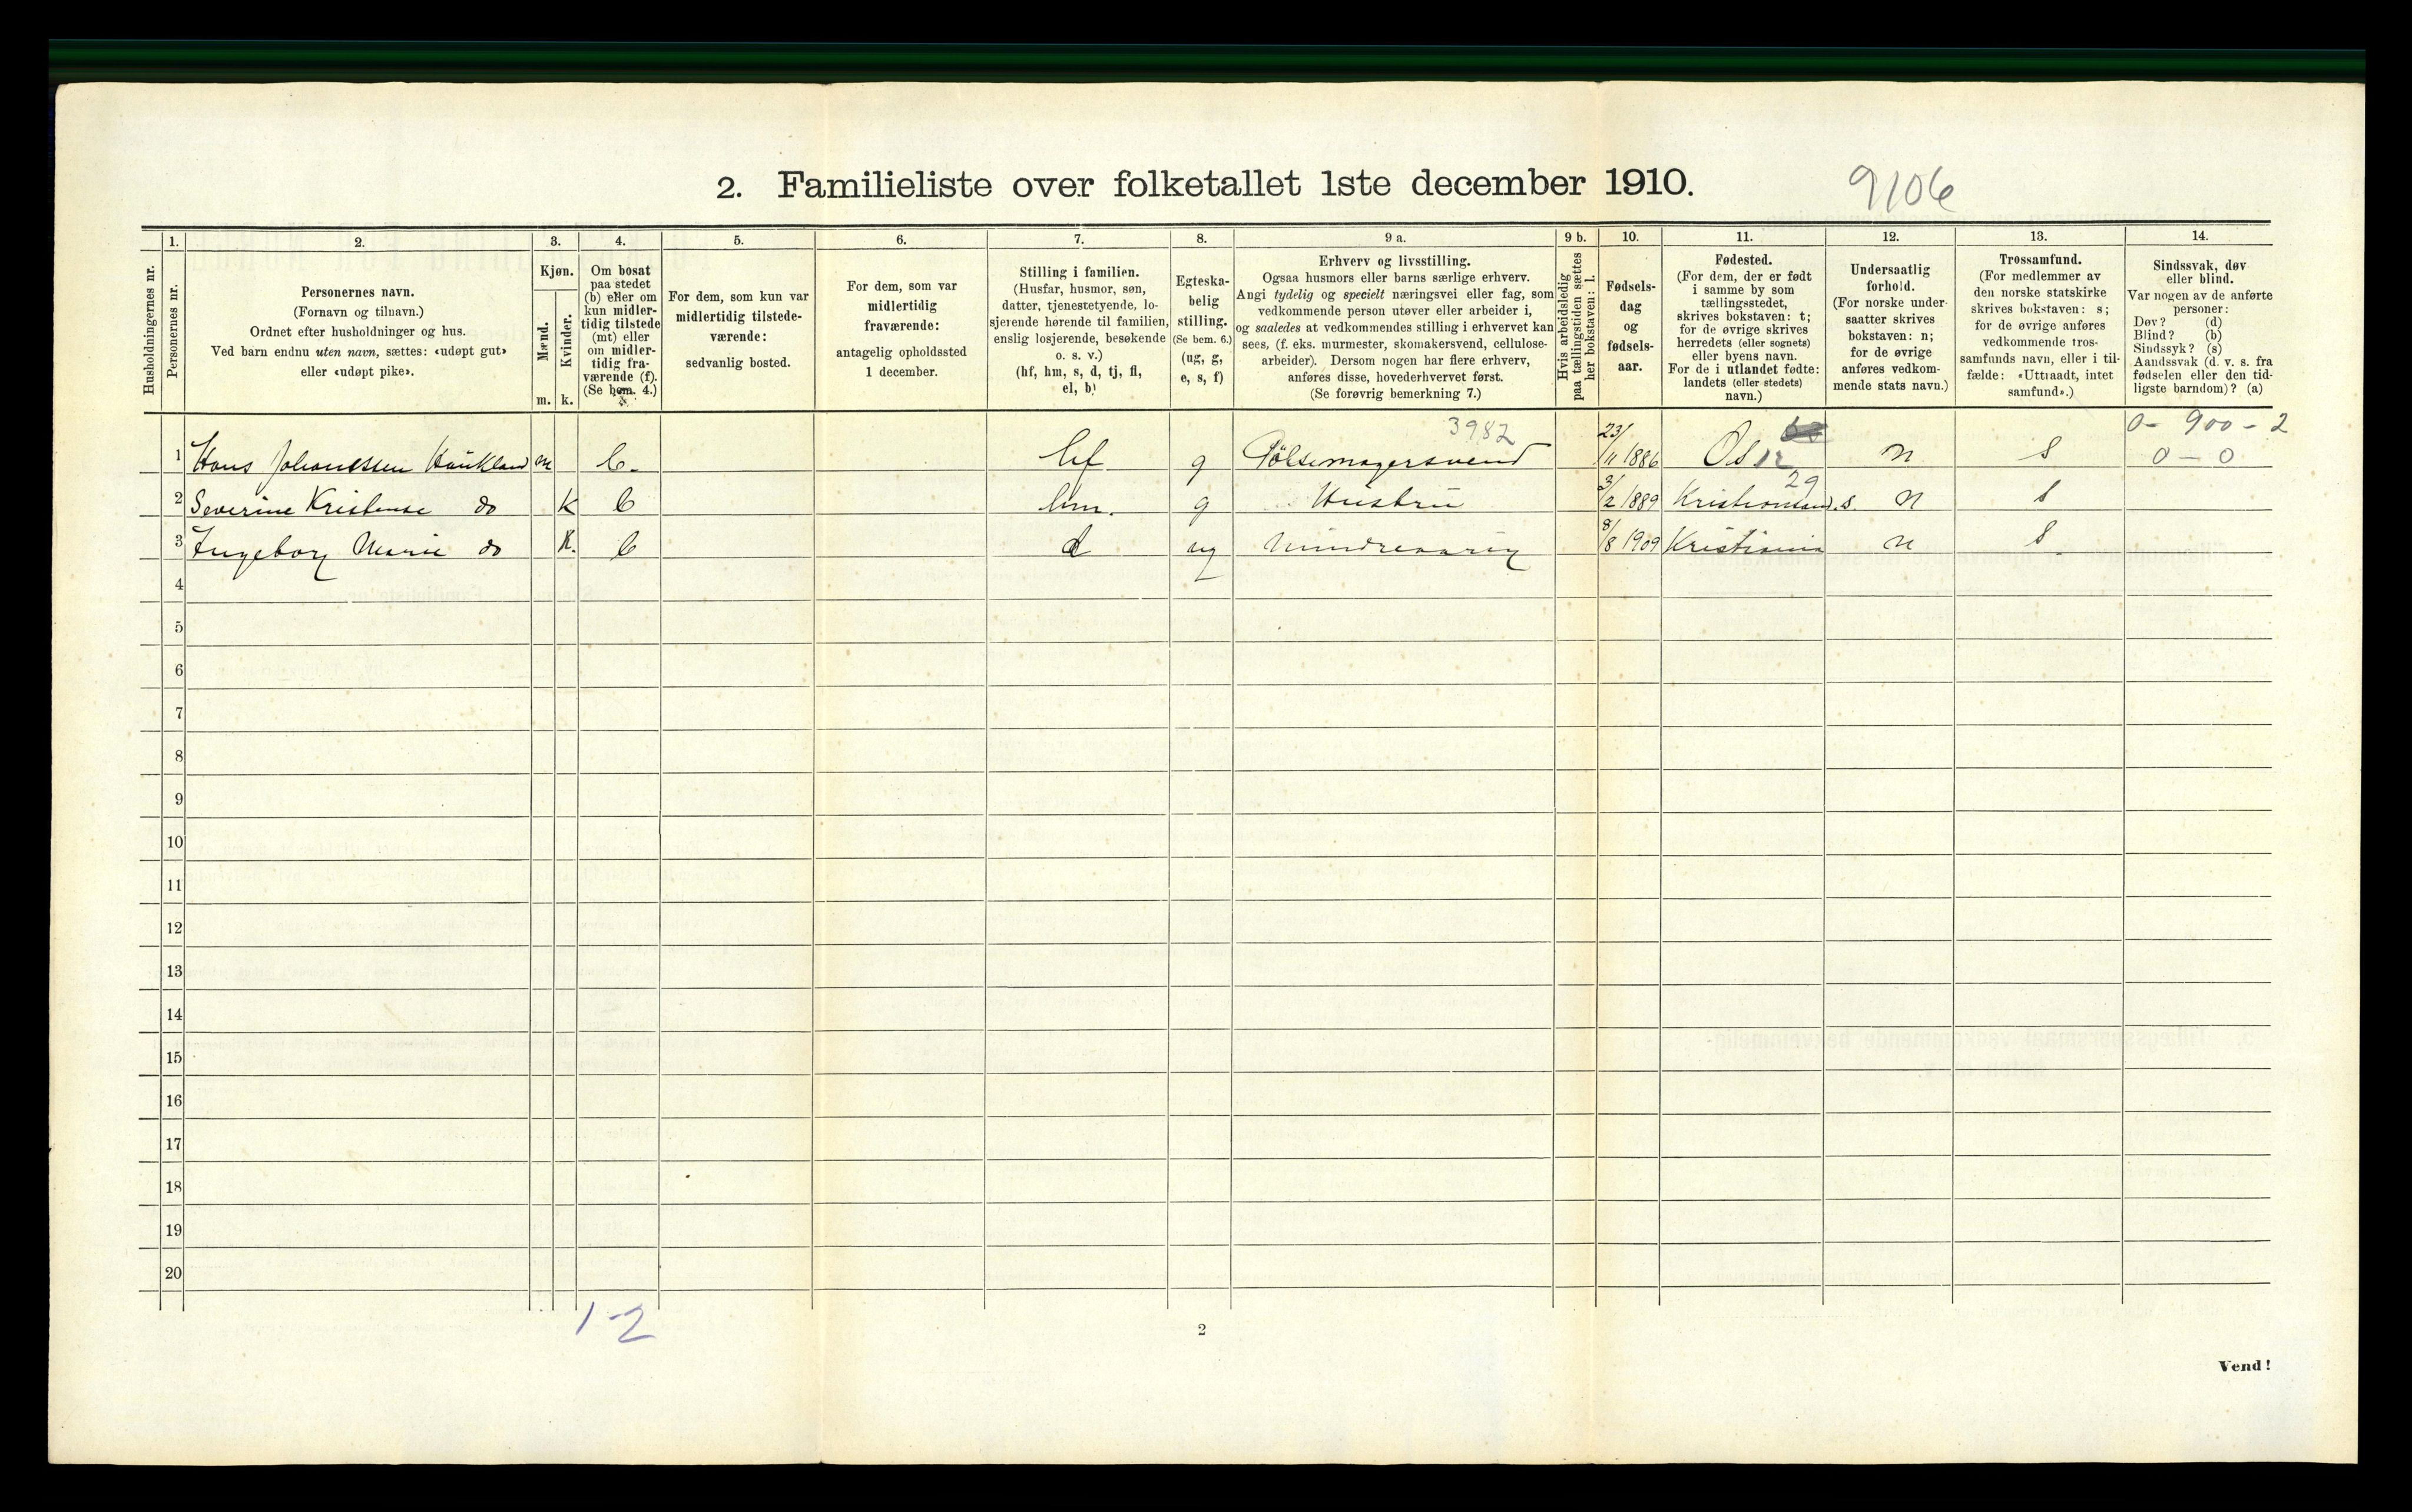 2. Familieliste over folketallet 1ste december 1910.
9106
1. 2. 3. 4. 5. 6. 7. 8. 9 a. 9 b. 10. 11. 12. 13. 14.
Husholdningernes nr.
Personernes nr.
Personernes navn.
(Fornavn og tilnavn.)
Ordnet efter husholdninger og hus.
Ved barn endnu uten navn, sættes: «udøpt gut»
eller «udøpt pike».
Kjøn.
Mænd.
Kvinder.
m. k.
Om bosat
paa stedet
(b) eller om
kun midler-
tidig tilstede
(mt) eller
om midler-
tidig fra-
værende (f).
(Se bem. 4.)
For dem, som kun var
midlertidig tilstede-
værende:
sedvanlig bosted.
For dem, som var
midlertidig
fraværende:
antagelig opholdssted
1 december.
Stilling i familien.
(Husfar, husmor, søn,
datter, tjenestetyende, lo-
sjerende hørende til familien,
enslig losjerende, besøkende
o. s. v.)
(hf, hm, s, d, tj, fl,
el, b)
Egteska-
belig
stilling.
(Se bem. 6.)
(ug, g,
e, s, f)
Erhverv og livsstilling.
Ogsaa husmors eller barns særlige erhverv.
Angi tydelig og specielt næringsvei eller fag, som
vedkommende person utøver eller arbeider i,
og saaledes at vedkommendes stilling i erhvervet kan
sees, (f. eks. murmester, skomakersvend, cellulose-
arbeider). Dersom nogen har flere erhverv,
anføres disse, hovederhvervet først.
(Se forøvrig bemerkning 7.)
Hvis arbeidsledig
paa tællingstiden sættes
her bokstaven: l.
Fødsels-
dag
og
fødsels-
aar.
Fødested.
(For dem, der er født
i samme by som
tællingsstedet,
skrives bokstaven: t;
for de øvrige skrives
herredets (eller sognets)
eller byens navn.
For de i utlandet fødte:
landets (eller stedets)
navn.)
Undersaatlig
forhold.
(For norske under-
saatter skrives
bokstaven: n;
for de øvrige
anføres vedkom-
mende stats navn.)
Trossamfund.
(For medlemmer av
den norske statskirke
skrives bokstaven: s;
for de øvrige anføres
vedkommende tros-
samfunds navn, eller i til-
fælde: «Uttraadt, intet
samfund».)
Sindssvak, døv
eller blind.
Var nogen av de anførte
personer:
Døv? (d)
Blind? (b)
Sindssyk? (s)
Aandssvak (d. v. s. fra
fødselen eller den tid-
ligste barndom)? (a)
3982
0 - 900 - 2
1 Hans Johanessen Haukland m b. hf g Pölsemagersvend 23/11 1886 Os 12 n s 0 - 0
29
2 Severine Kristense do k b hm. g Hustru 3/2 1889 Kristiansand. s. n s
3 Ingeborg Marie do k. b d ug Mindreaarig 8/8 1909 Kristiania n s
4
5
6
7
8
9
10
11
12
13
14
15
16
17
18
19
20
1-2
2
Vend!